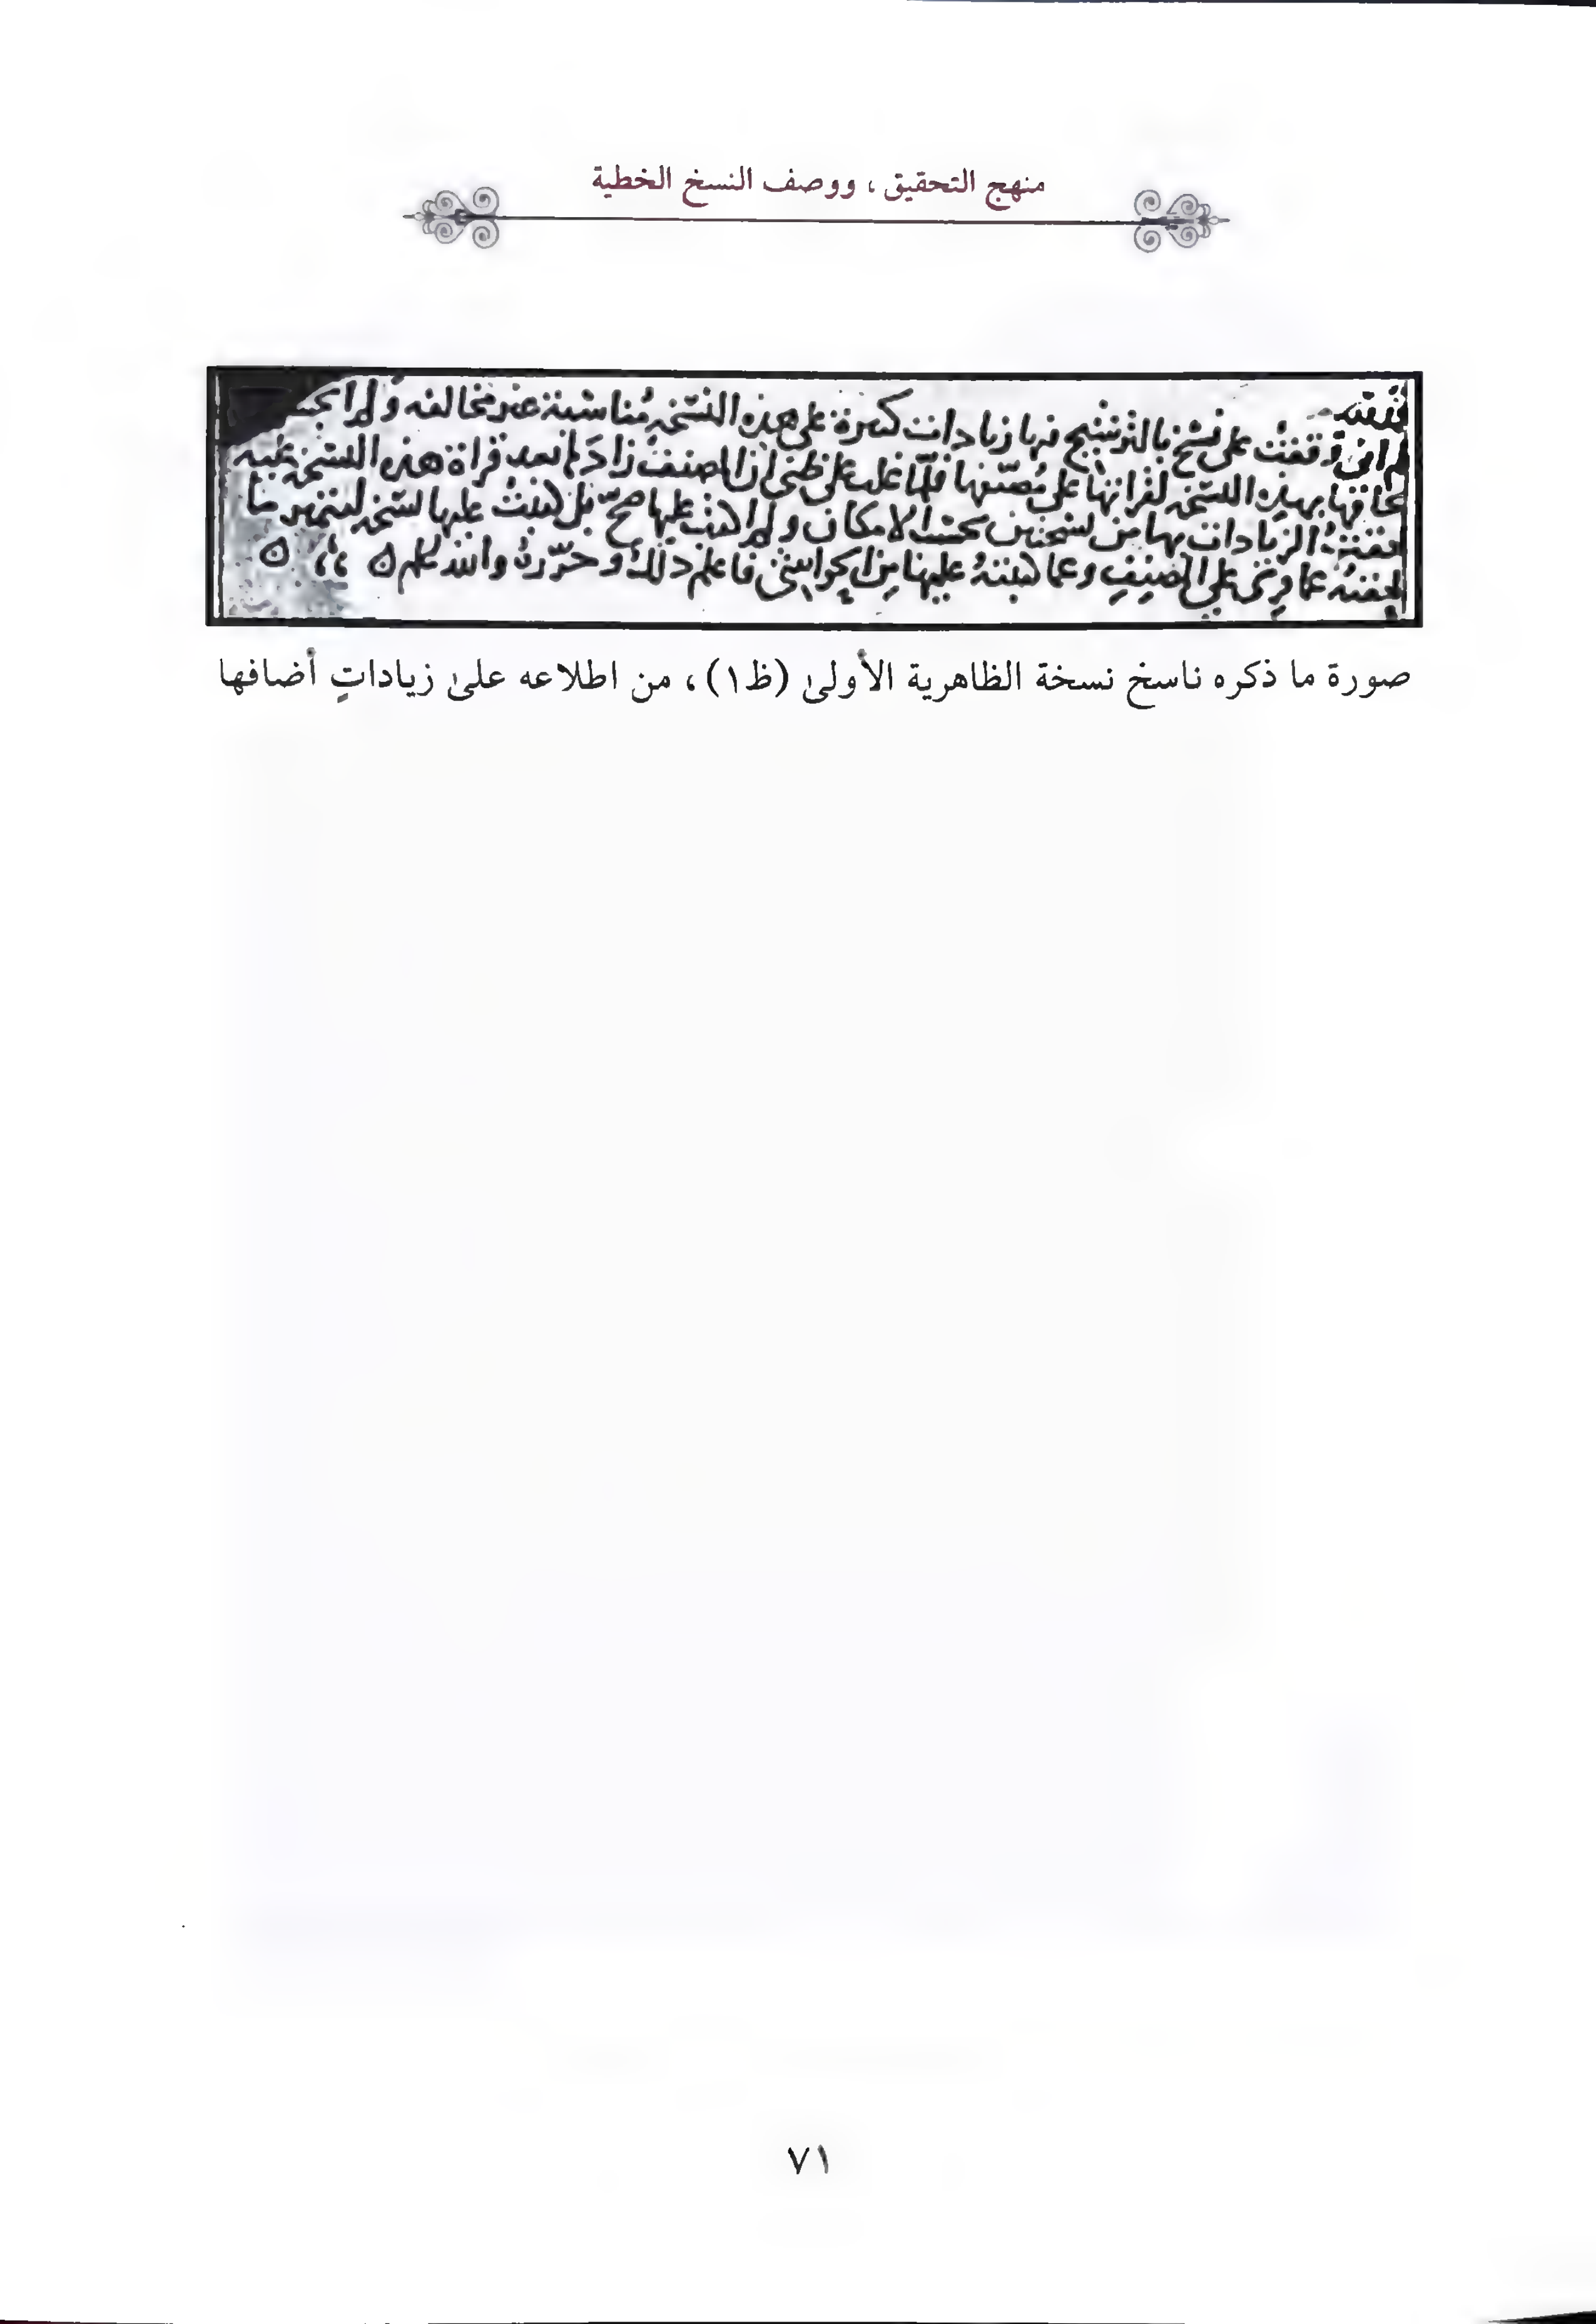 منهج التحقيق ، ووصف النسخ الخطية
ثم انى وقفت على نسخ بالتوشيح فيها زيادات كثيرة على هذه النسخة مناسبة غير مخالفة ولم
لقراتها على مصنفها فلما غلب على ظنى ان المصنف زادها بعد قراة هذه النسخة عليه
الحقت الزيادات بها من نسختين بحسب الامكان ولم اكتب عليها صح بل كتبت عليها نسخة لتتميز ما
الحقته عما قرئ على المصنف وعما كتبته عليها من الحواشى فاعلم ذلك وحرره والله اعلم
صورة ما ذكره ناسخ نسخة الظاهرية الأولىٰ (ظ١) ، من اطلاعه علىٰ زياداتٍ أضافها
٧١